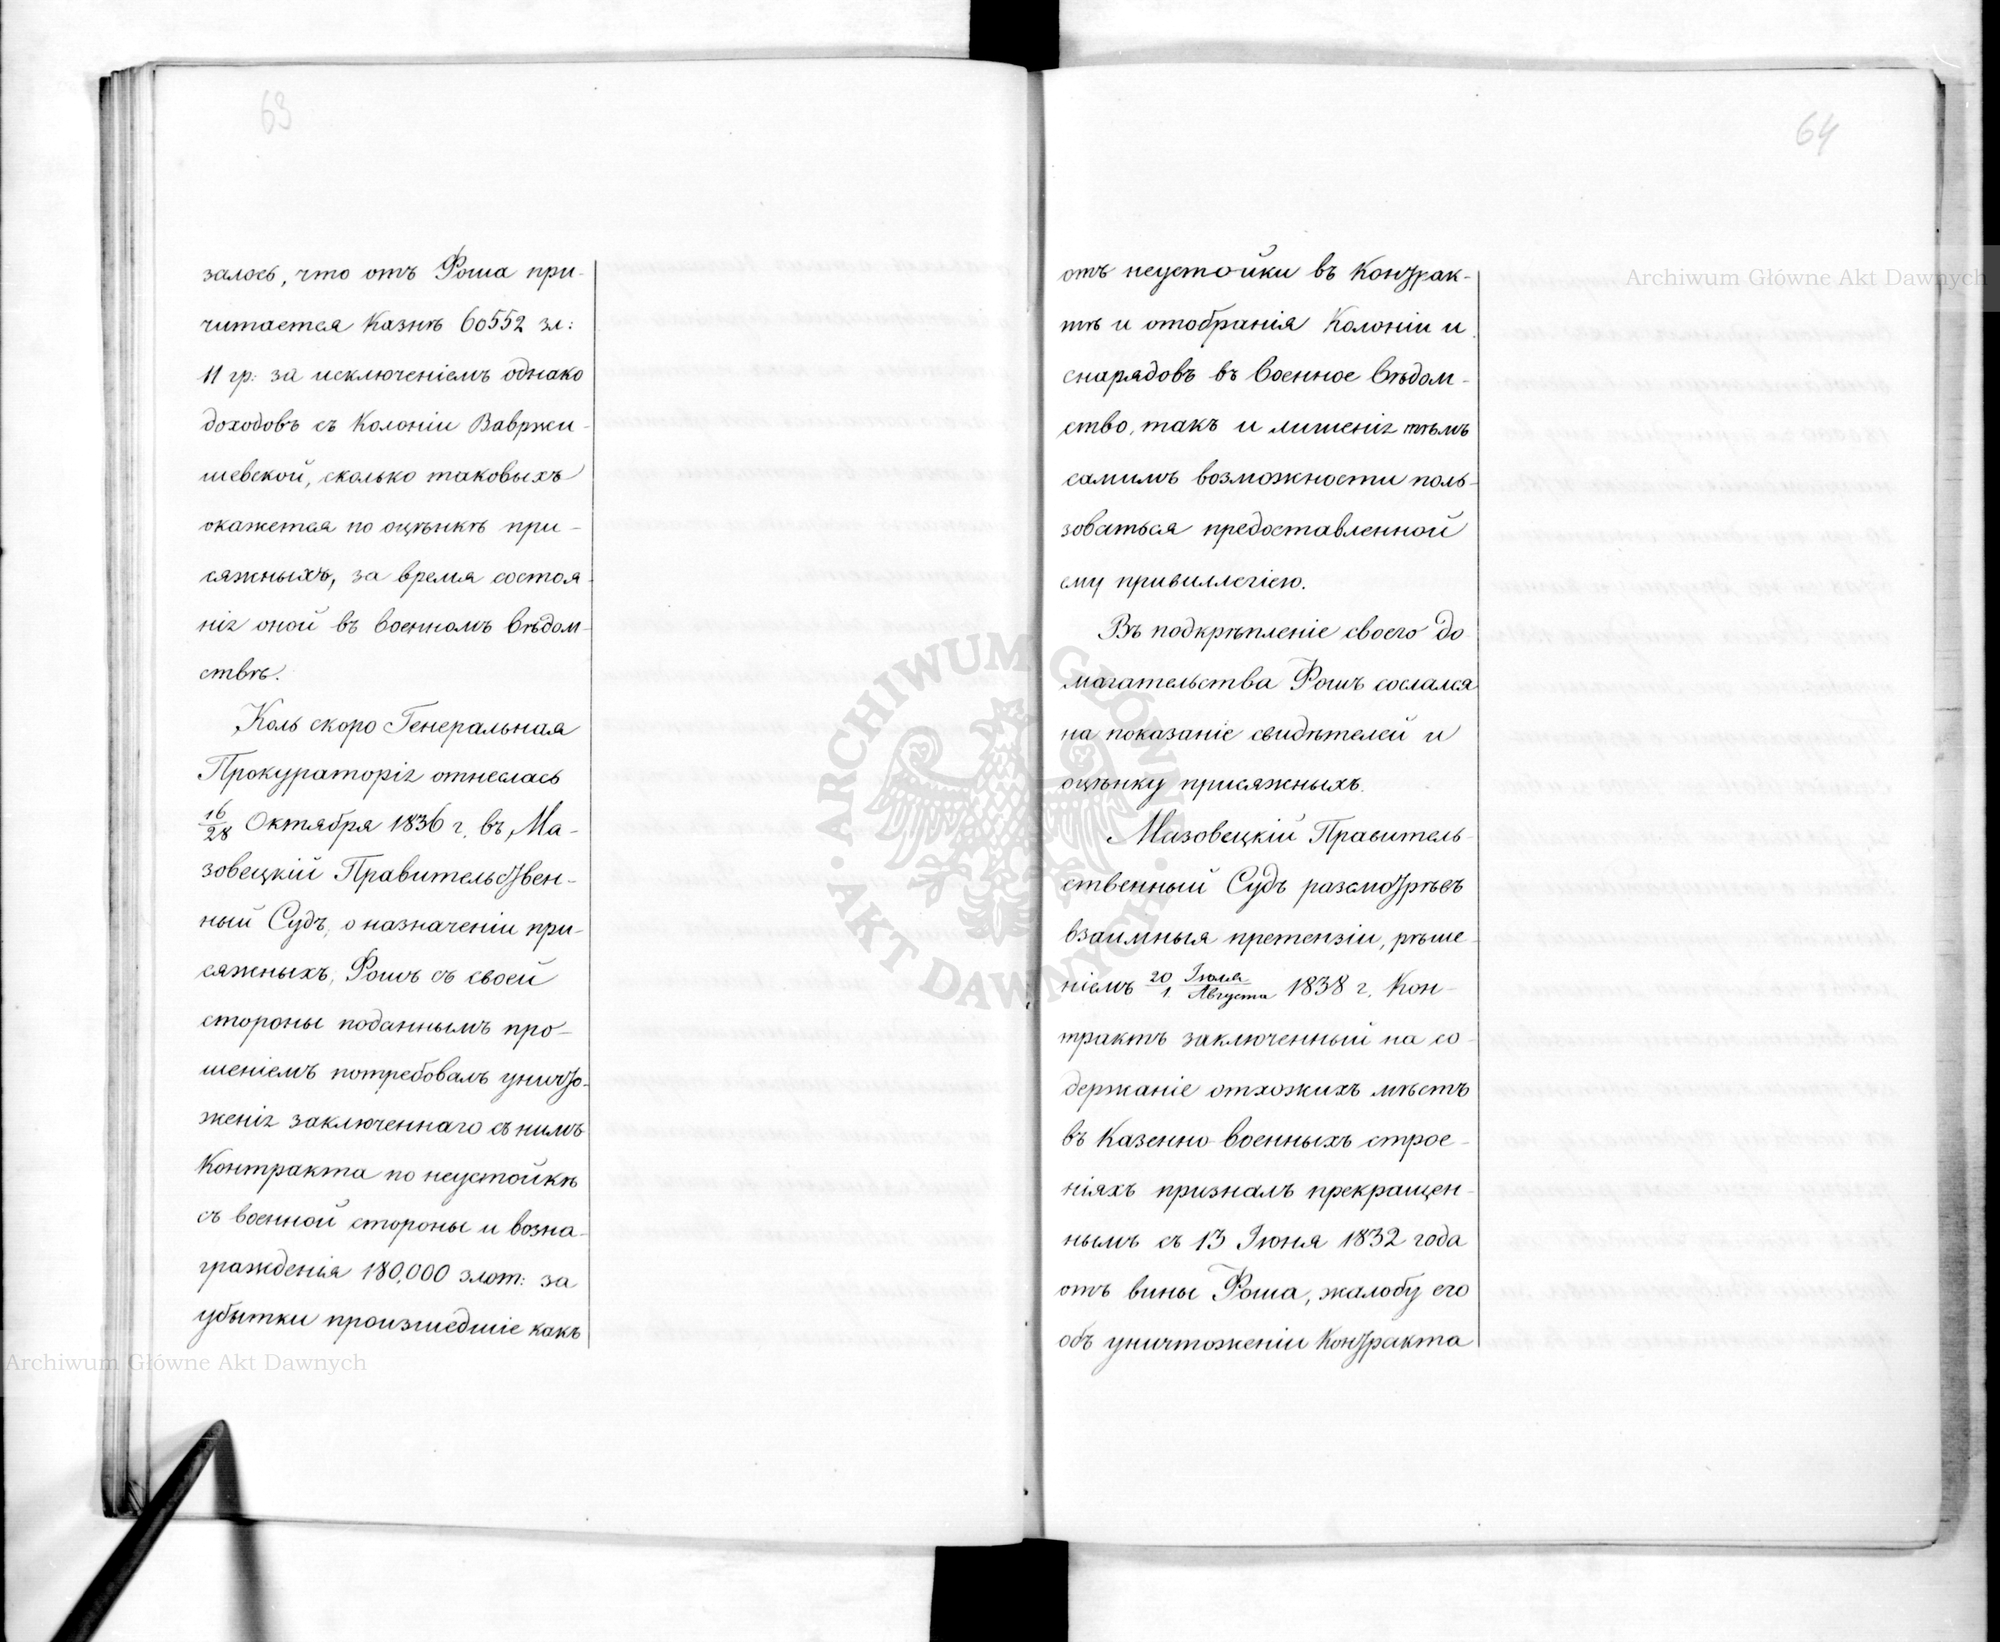 63
залось, что отъ Роша при-
читается Казнѣ 60552 зл:
11 гр: за исключеніемъ однако
доходовъ съ Колоніи Вавржи-
шевской, сколько таковыхъ
окажется по оцѣнкѣ при-
сяжныхъ, за время состоя-
нія оной въ военномъ вѣдом-
ствѣ.
Коль скоро Генеральная
Прокураторія отнеслась
16/28 Октября 1836 г. въ Ма-
зовецкій Правительствен-
ный Судъ, о назначеніи при-
сяжныхъ, Рошъ съ своей
стороны поданнымъ про-
шеніемъ потребовалъ уничто-
женія заключеннаго съ нимъ
Контракта по неустойкѣ
съ военной стороны и возна-
гражденія 180,000 злот: за
убытки произшедшіе какъ
64
отъ неустойки въ Контрак-
тѣ и отобранія Колоніи и
снарядовъ въ военное вѣдом-
ство, такъ и лишенія тѣмъ
самимъ возможности поль-
зоваться предоставленной
ему привиллегіею.
Въ подкрѣпленіе своего до-
могательства Рошъ сослался
на показаніе свидѣтелей и
оцѣнку присяжныхъ.
Мазовецкій Правитель-
ственный Судъ разсмотрѣвъ
взаимныя претензіи, рѣше-
ніемъ 20 Іюля/1 Августа 1838 г. Кон-
трактъ заключенный на со-
держаніе отхожихъ мѣстъ
въ Казенно военныхъ строе-
ніяхъ призналъ прекращен-
нымъ съ 13 Іюня 1832 года
отъ вины Роша, жалобу его
объ уничтоженіи Контракта
Archiwum Główne Akt Dawnych
Archiwum Główne Akt Dawnych
ARCHIWUM GŁÓWNE · AKT DAWNYCH ·